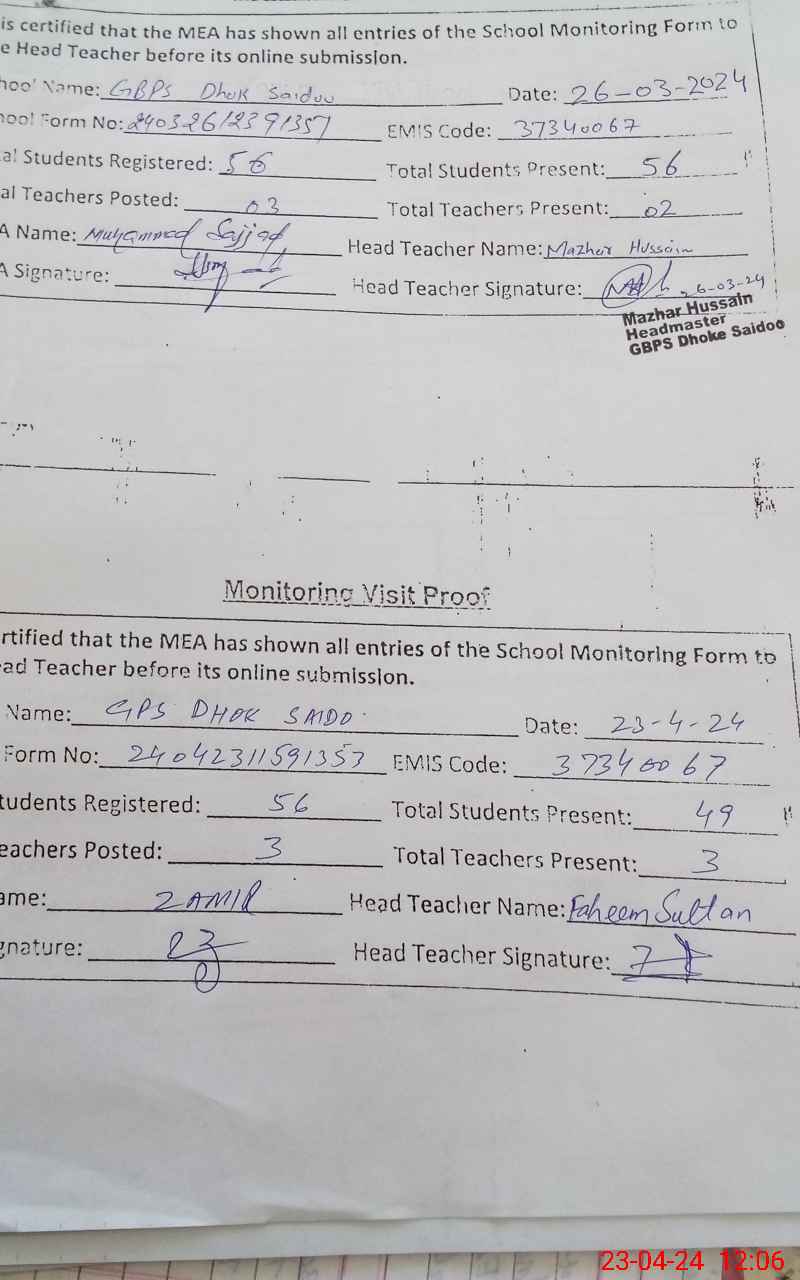 is certified that the MEA has shown all entries of the School Monitoring Form to
e Head Teacher before its online submission.
hool Name: GBPS Dhok Saidoo Date: 26-03-2024
hool Form No: 24032612391357 EMIS Code: 37340067
al Students Registered: 56 Total Students Present: 56
al Teachers Posted: 03 Total Teachers Present: 02
A Name: Muhammad Sajjad Head Teacher Name: Mazhar Hussain
A Signature: Head Teacher Signature: 26-03-24
Mazhar Hussain
Headmaster
GBPS Dhoke Saidoo
Monitoring Visit Proof
rtified that the MEA has shown all entries of the School Monitoring Form to
ead Teacher before its online submission.
Name: GPS DHOK SAIDO. Date: 23-4-24
Form No: 24042311591357 EMIS Code: 37340067
tudents Registered: 56 Total Students Present: 49
eachers Posted: 3 Total Teachers Present: 3
ame: ZAMIR Head Teacher Name: Faheem Sultan
gnature: Head Teacher Signature:
23-04-24 12:06